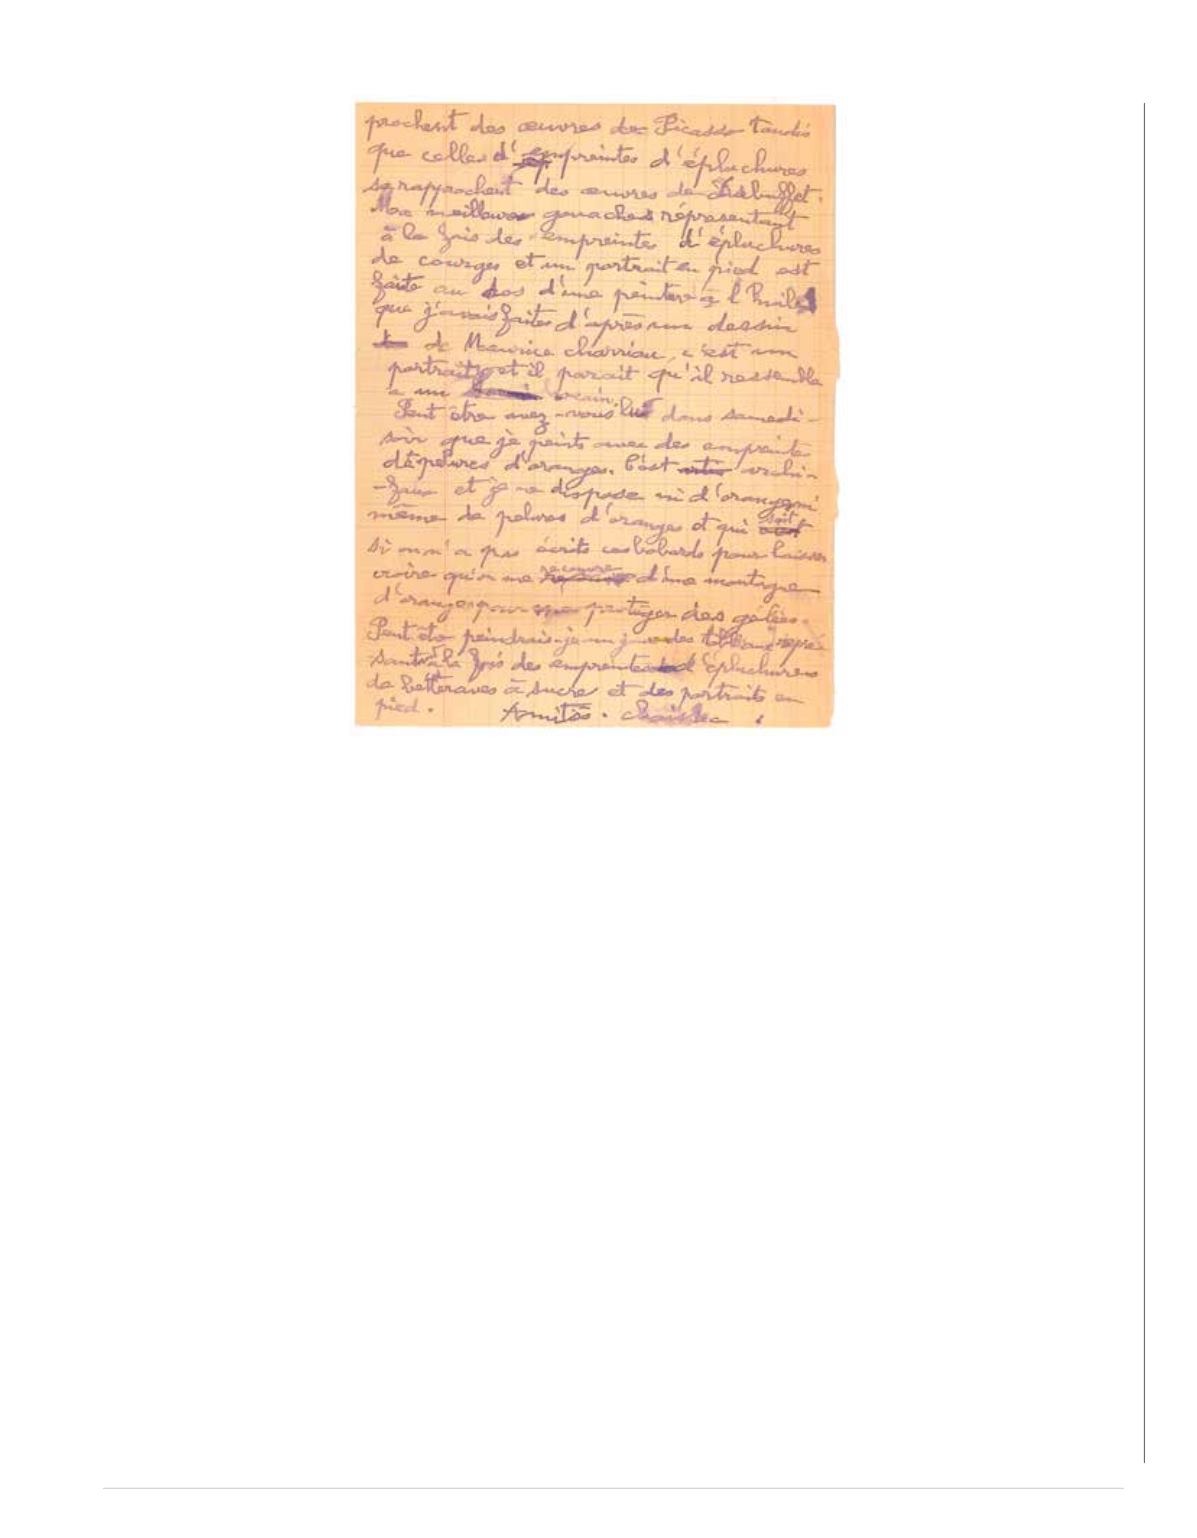 prochent des œuvres de Picasso tandis
que celles d'empreintes d'épluchures
se rapprochent des œuvres de Dubuffet.
Mes meilleures gouaches réprésentant
à la fois des empreintes d'épluchures
de courges et un portrait en pied est
faite au dos d'une peinture à l'huile
que j'avais faites d'après un dessin
de Maurice charriau, c'est un
portrait et il parait qu'il ressemble
a un
Peut être avez-vous lu dans samedi-
soir que je peints avec des empreintes
de pelures d'oranges. C'est archi-
-faux et je ne dispose ni d'oranges ni
même de pelures d'oranges et qui sait
si on n'a pas écrits ces bobards pour laisser
croire qu'on me recouvre d'une montagne
d'oranges pour me protéger des gelées.
Peut être peindrais-je un jour des tableaux repré
sentant à la fois des empreintes d'épluchures
de betteraves à sucre et des portraits en
pied. Amitiés. chaissac